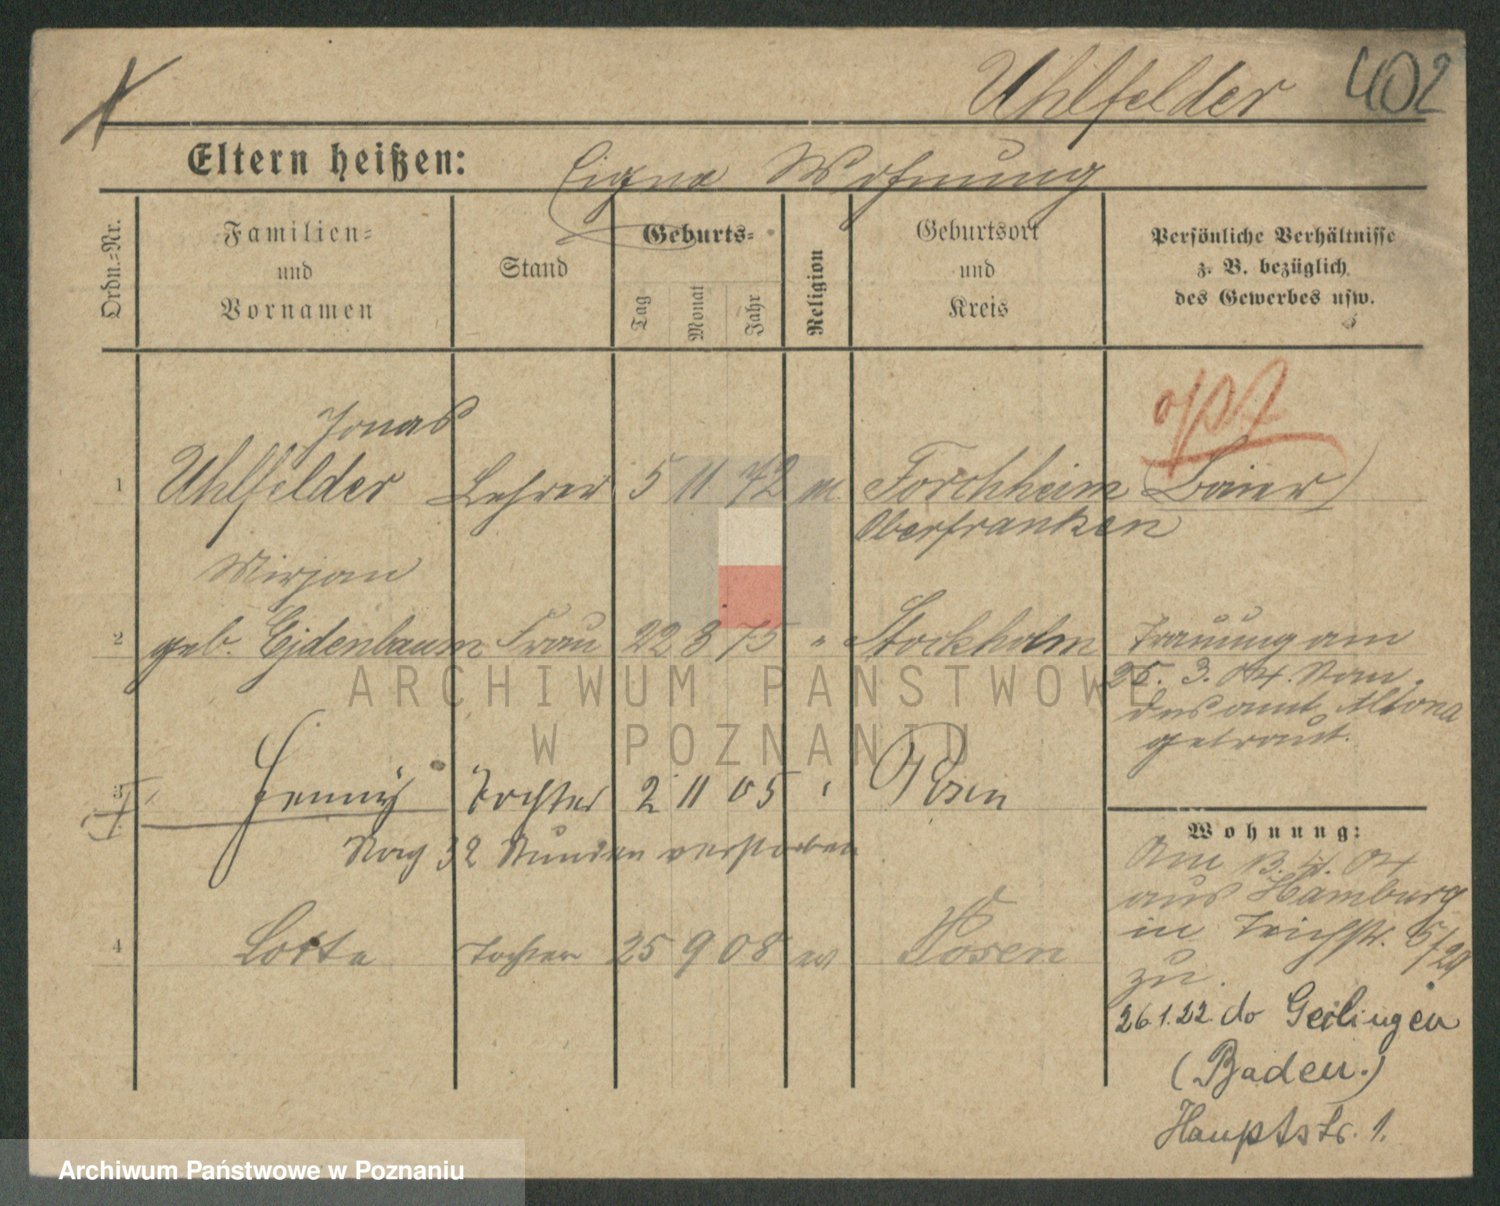 Uhlfelder 402
Eltern heißen: Eigne Wohnung
Ordn.-Nr.
Familien-
und
Vornamen
Stand
Geburts-
Tag
Monat
Jahr
Religion
Geburtsort
und
Kreis
Persönliche Verhältnisse
z. B. bezüglich
des Gewerbes usw.
Jonas
1 Uhlfelder Lehrer 5 11 72 m Forchheim (Baier)
Oberfranken
Mirjan
2 geb. Ejdenbaum Frau 22 3 75 " Stockholm
Trauung am
25. 3. 04. Stan-
desamt Altona
getraut.
3 Henny Tochter 2 11 05 " Posen
Nach 32 Stunden verstorben
4 Lotte Tochter 25 9 08 w Posen
Wohnung:
Am 13. 4. 04
aus Hamburg
in Teichstr. 5/29
zu.
26.1.22. do Geilingen
(Baden.)
Hauptstr. 1.
ARCHIWUM PAŃSTWOWE
W POZNANIU
Archiwum Państwowe w Poznaniu